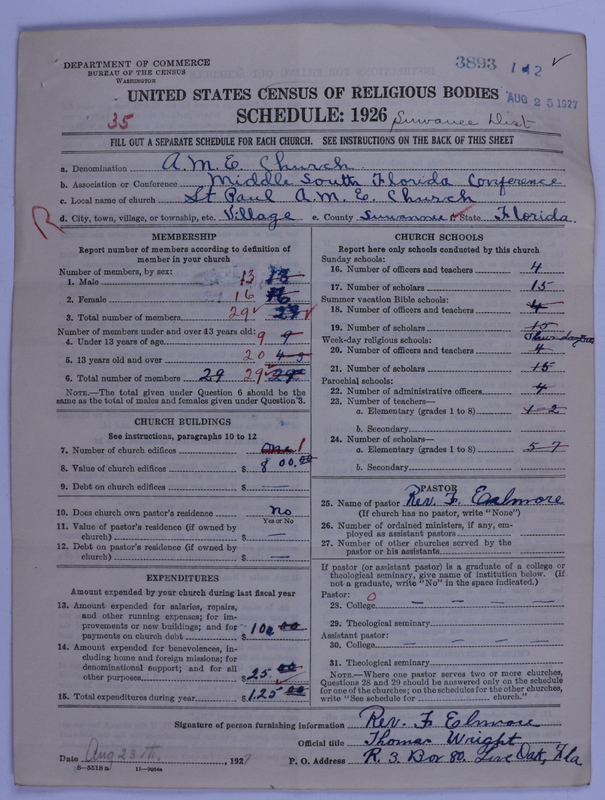 DEPARTMENT OF COMMERCE
BUREAU OF THE CENSUS
WASHINGTON
3893 1 42 ✓
UNITED STATES CENSUS OF RELIGIOUS BODIES
AUG 25 1927
35
SCHEDULE: 1926 Suwanee Dist
FILL OUT A SEPARATE SCHEDULE FOR EACH CHURCH. SEE INSTRUCTIONS ON THE BACK OF THIS SHEET
a. Denomination A.M.E. Church
b. Association or Conference Middle South Florida Conference
c. Local name of church St Paul A.M.E. Church
R d. City, town, village, or township, etc. Village e. County Suwannee f. State Florida.
MEMBERSHIP
Report number of members according to definition of member in your church
Number of members, by sex:
1. Male 13 13
2. Female 16 16
3. Total number of members 29 ✓ 29 ✓
Number of members under and over 13 years old:
4. Under 13 years of age 9 9
5. 13 years old and over 20
6. Total number of members 29 29 ✓ 29
NOTE.—The total given under Question 6 should be the same as the total of males and females given under Question 3.
CHURCH BUILDINGS
See instructions, paragraphs 10 to 12
7. Number of church edifices one 1
8. Value of church edifices $ 800.00
9. Debt on church edifices $ —
10. Does church own pastor's residence? no
Yes or No
11. Value of pastor's residence (if owned by church) $ —
12. Debt on pastor's residence (if owned by church) $ —
EXPENDITURES
Amount expended by your church during last fiscal year
13. Amount expended for salaries, repairs, and other running expenses; for improvements or new buildings; and for payments on church debt $ 100 00
14. Amount expended for benevolences, including home and foreign missions; for denominational support; and for all other purposes $ 25 00
15. Total expenditures during year $ 125 00
CHURCH SCHOOLS
Report here only schools conducted by this church
Sunday schools:
16. Number of officers and teachers 4
17. Number of scholars 15
Summer vacation Bible schools:
18. Number of officers and teachers 4
19. Number of scholars 15
Week-day religious schools:
20. Number of officers and teachers 4
21. Number of scholars 15
Parochial schools:
22. Number of administrative officers 4
23. Number of teachers—
a. Elementary (grades 1 to 8) 1-2
b. Secondary
24. Number of scholars—
a. Elementary (grades 1 to 8) 5 7
b. Secondary
PASTOR
25. Name of pastor Rev. F. Ealmore
(If church has no pastor, write "None")
26. Number of ordained ministers, if any, employed as assistant pastors
27. Number of other churches served by the pastor or his assistants
If pastor (or assistant pastor) is a graduate of a college or theological seminary, give name of institution below. (If not a graduate, write "No" in the space indicated.)
Pastor: 0
28. College — — — —
29. Theological seminary
Assistant pastor:
30. College — — — —
31. Theological seminary
NOTE.—Where one pastor serves two or more churches, Questions 28 and 29 should be answered only on the schedule for one of the churches; on the schedules for the other churches, write "See schedule for church."
Signature of person furnishing information Rev. F. Ealmore
Official title Thomas Wright
Date Aug 23th, 1927 P. O. Address R. 3. Box 80. Live Oak, Fla
8—5518a 11—9914a